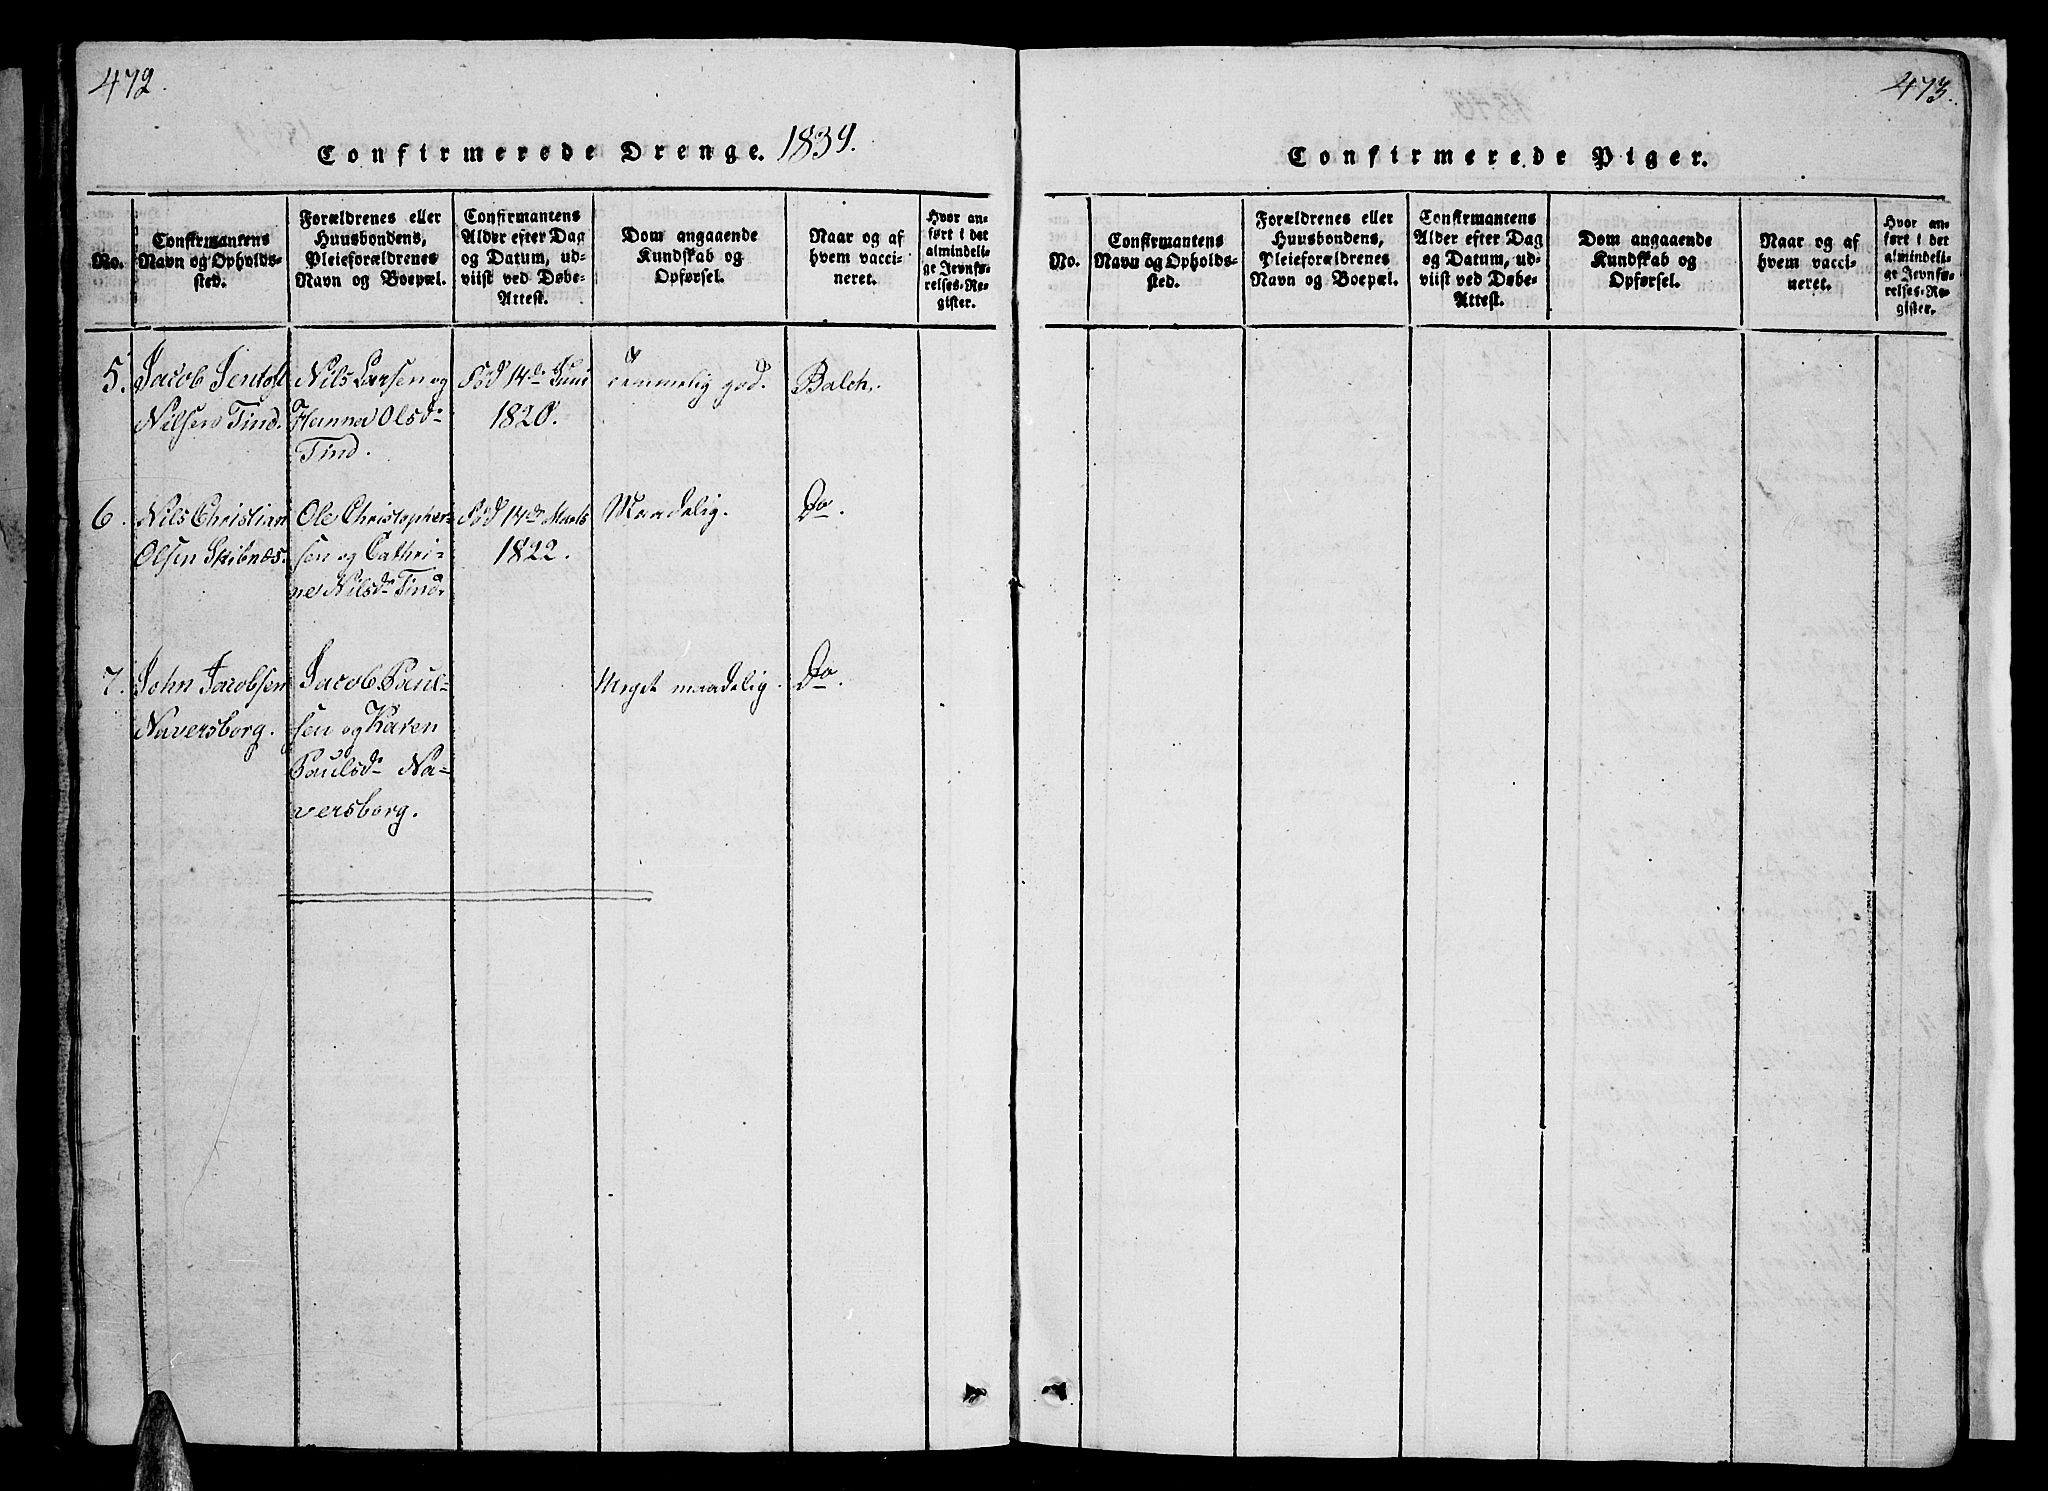 472.
Confirmerede Drenge. 1839.
No.
Confirmantens
Navn og Opholds-
sted.
Forældrenes eller
Huusbondens,
Pleieforældrenes
Navn og Boepæl.
Confirmantens
Alder efter Dag
og Datum, ud-
viist ved Døbe-
Attest.
Dom angaaende
Kundskab og
Opførsel.
Naar og af
hvem vacci-
neret.
Hvor an-
ført i det
almindeli-
ge Jevnfø-
relses-Re-
gister.
5.
Jacob
Nilsen Tind.
Nils Larsen og
Hanna Olsdr
Tind.
Fød 14de Juni
1820.
temmelig god.
Balch.
6.
Nils Christian
Olsen Skibnæs.
Ole Christopher-
sen og Cathri-
ne Nilsdr Tind.
Fød 14de Marts
1822.
Maadelig.
Do.
7.
John Jacobsen
Naversborg.
Jacob Paul-
sen og Karen
Paulsdr Na-
versborg.
Meget maadelig.
Do.
473.
Confirmerede Piger.
No.
Confirmantens
Navn og Opholds-
sted.
Forældrenes eller
Huusbondens,
Pleieforældrenes
Navn og Boepæl.
Confirmantens
Alder efter Dag
og Datum, ud-
viist ved Døbe-
Attest.
Dom angaaende
Kundskab og
Opførsel.
Naar og af
hvem vacci-
neret.
Hvor an-
ført i det
almindeli-
ge Jevnfø-
relses-Re-
gister.